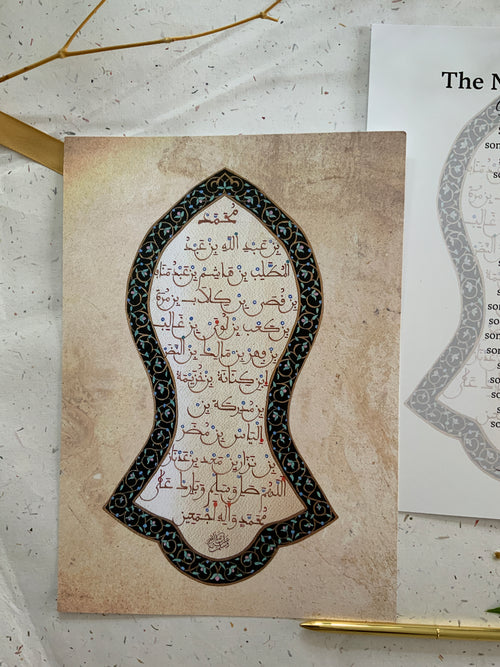 محمد
بن عبد الله بن عبد
المطلب بن هاشم بن عبد مناف
بن قصي بن كلاب بن مرة
بن كعب بن لؤي بن غالب
بن فهر بن مالك بن النضر
ابن كنانة بن خزيمة
بن مدركة بن
إلياس بن مضر
بن نزار بن معد بن عدنان
اللهم صل وسلم وبارك على
محمد وآله أجمعين
The N
son
son
so
so
so
son
so
so
son
son
son
so
so
so
so